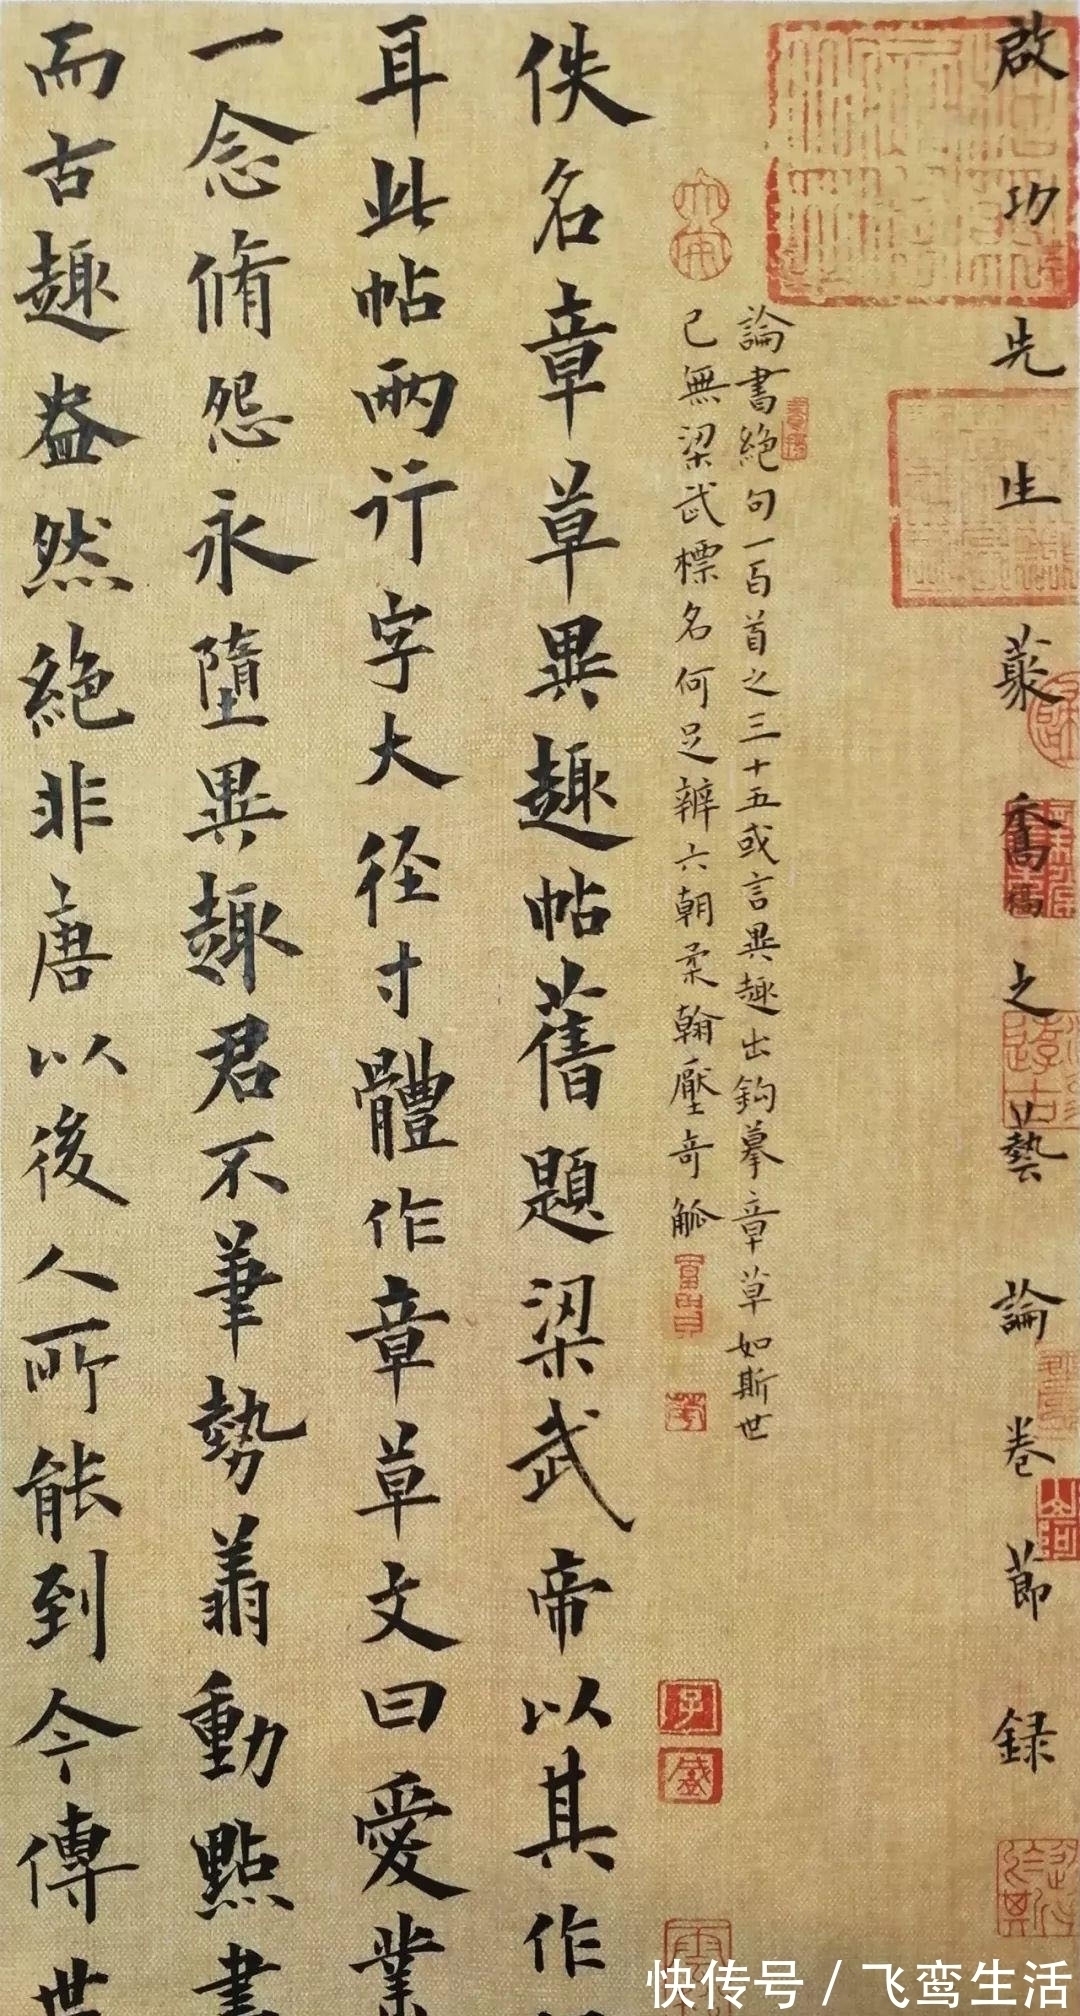 啟功先生喬之藝論卷節録
論書絶句一百首之三十五或言異趣出鈎摹章草如斯世
已無梁武標名何足辨六朝柔翰壓奇觚
佚名章草異趣帖舊題梁武帝以其作
耳此帖兩行字大径寸體作章草文曰愛業
一念脩怨永墮異趣君不筆勢翥動點畫
而古趣盎然絶非唐以後人所能到今傳世
快传号 / 飞鸾生活